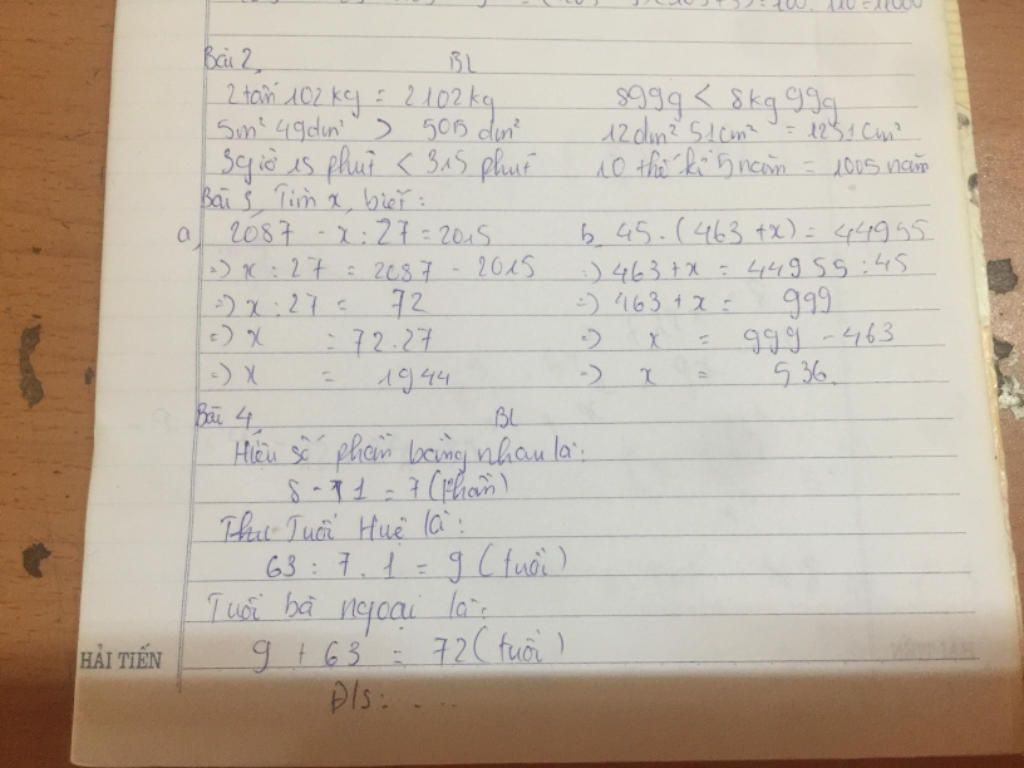 = 100. 110 = 11000
Bài 2, BL
2 tấn 102 kg = 2102 kg 899g < 8kg 99g
5m² 49dm² > 5015 dm² 12dm² 51cm² = 1251cm²
3 giờ 15 phút < 315 phút 10 thế kỉ 5 năm = 1005 năm
Bài 3, Tìm x, biết:
a, 2087 - x : 27 = 2015 b, 45. (463 + x) = 44955
=) x : 27 = 2087 - 2015 =) 463 + x = 44955 : 45
=) x : 27 = 72 =) 463 + x = 999
=) x = 72.27 =) x = 999 - 463
=) x = 1944 =) x = 536.
Bài 4 BL
Hiệu số phần bằng nhau là:
8 - 1 = 7 (phần)
Tuổi Huệ là:
63 : 7 . 1 = 9 (tuổi)
Tuổi bà ngoại là:
9 + 63 = 72 (tuổi)
HẢI TIẾN
Đ/s: ....